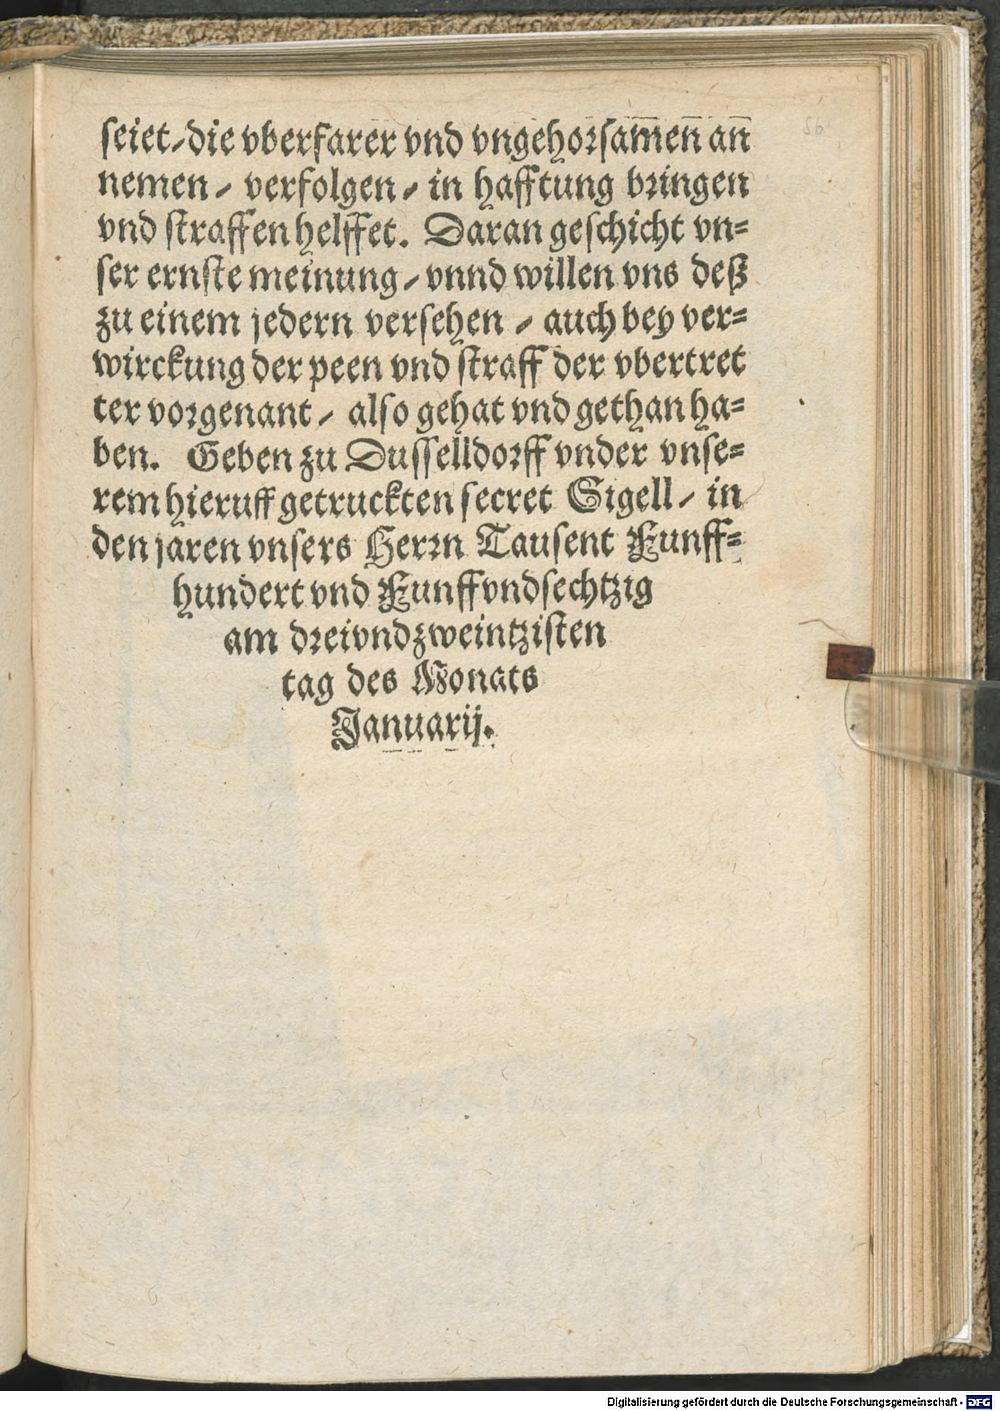 seiet / die vberfarer vnd vngehorsam̅en̅ an̅
nemen / verfolgen / in hafftung bringen
vnd straffen helffet. Daran geschicht vn=
ser ernste meinung / vnnd willen vns deß
zu einem jedern versehen / auch bey ver=
wirckung der peen vnd straff der vbertret
ter vorgenant / also gehat vnd gethan ha=
ben. Geben zu Dusselldorff vnder vnse=
rem hieruff getruckten secret Sigell / in
den jaren vnsers Herrn Tausent Funff=
hundert vnd Funffvndsechtzig
am dreivndzweintzisten
tag des Monats
Januarij.
Digitalisierung gefördert durch die Deutsche Forschungsgemeinschaft - DFG